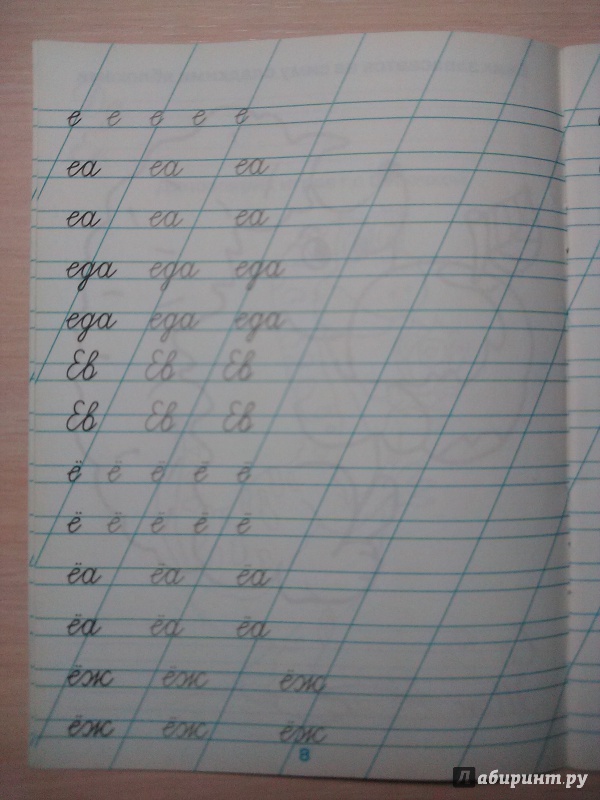 е е е е е
еа еа еа
еа еа еа
еда еда еда
еда еда еда
Ев Ев Ев
Ев Ев Ев
ё ё ё ё ё
ё ё ё ё ё
ёа ёа ёа
ёа ёа ёа
ёж ёж ёж
ёж ёж ёж
8
Лабиринт.ру